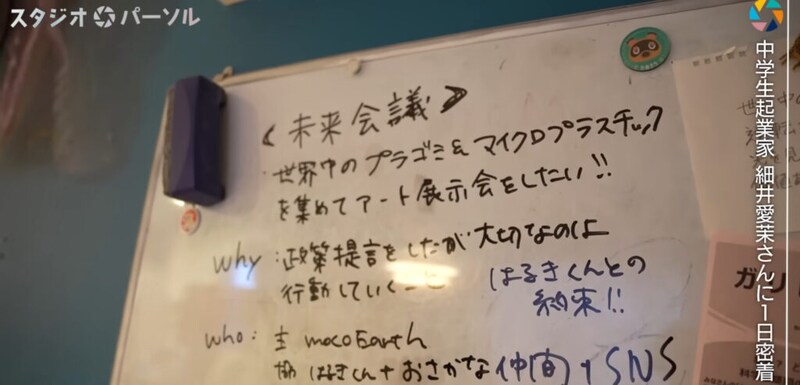 スタジオパーソル
中学生起業家 細井愛茉さんに1日密着
<未来会議>
・世界中のプラゴミ&マイクロプラスチック
を集めてアート展示会をしたい!!
why:政策提言をしたが大切なのは
行動していくこと
はるきくんとの
約束!!
who: 主 mocoEarth
協 はるきくん+おさかな仲間+SNS
ガリ